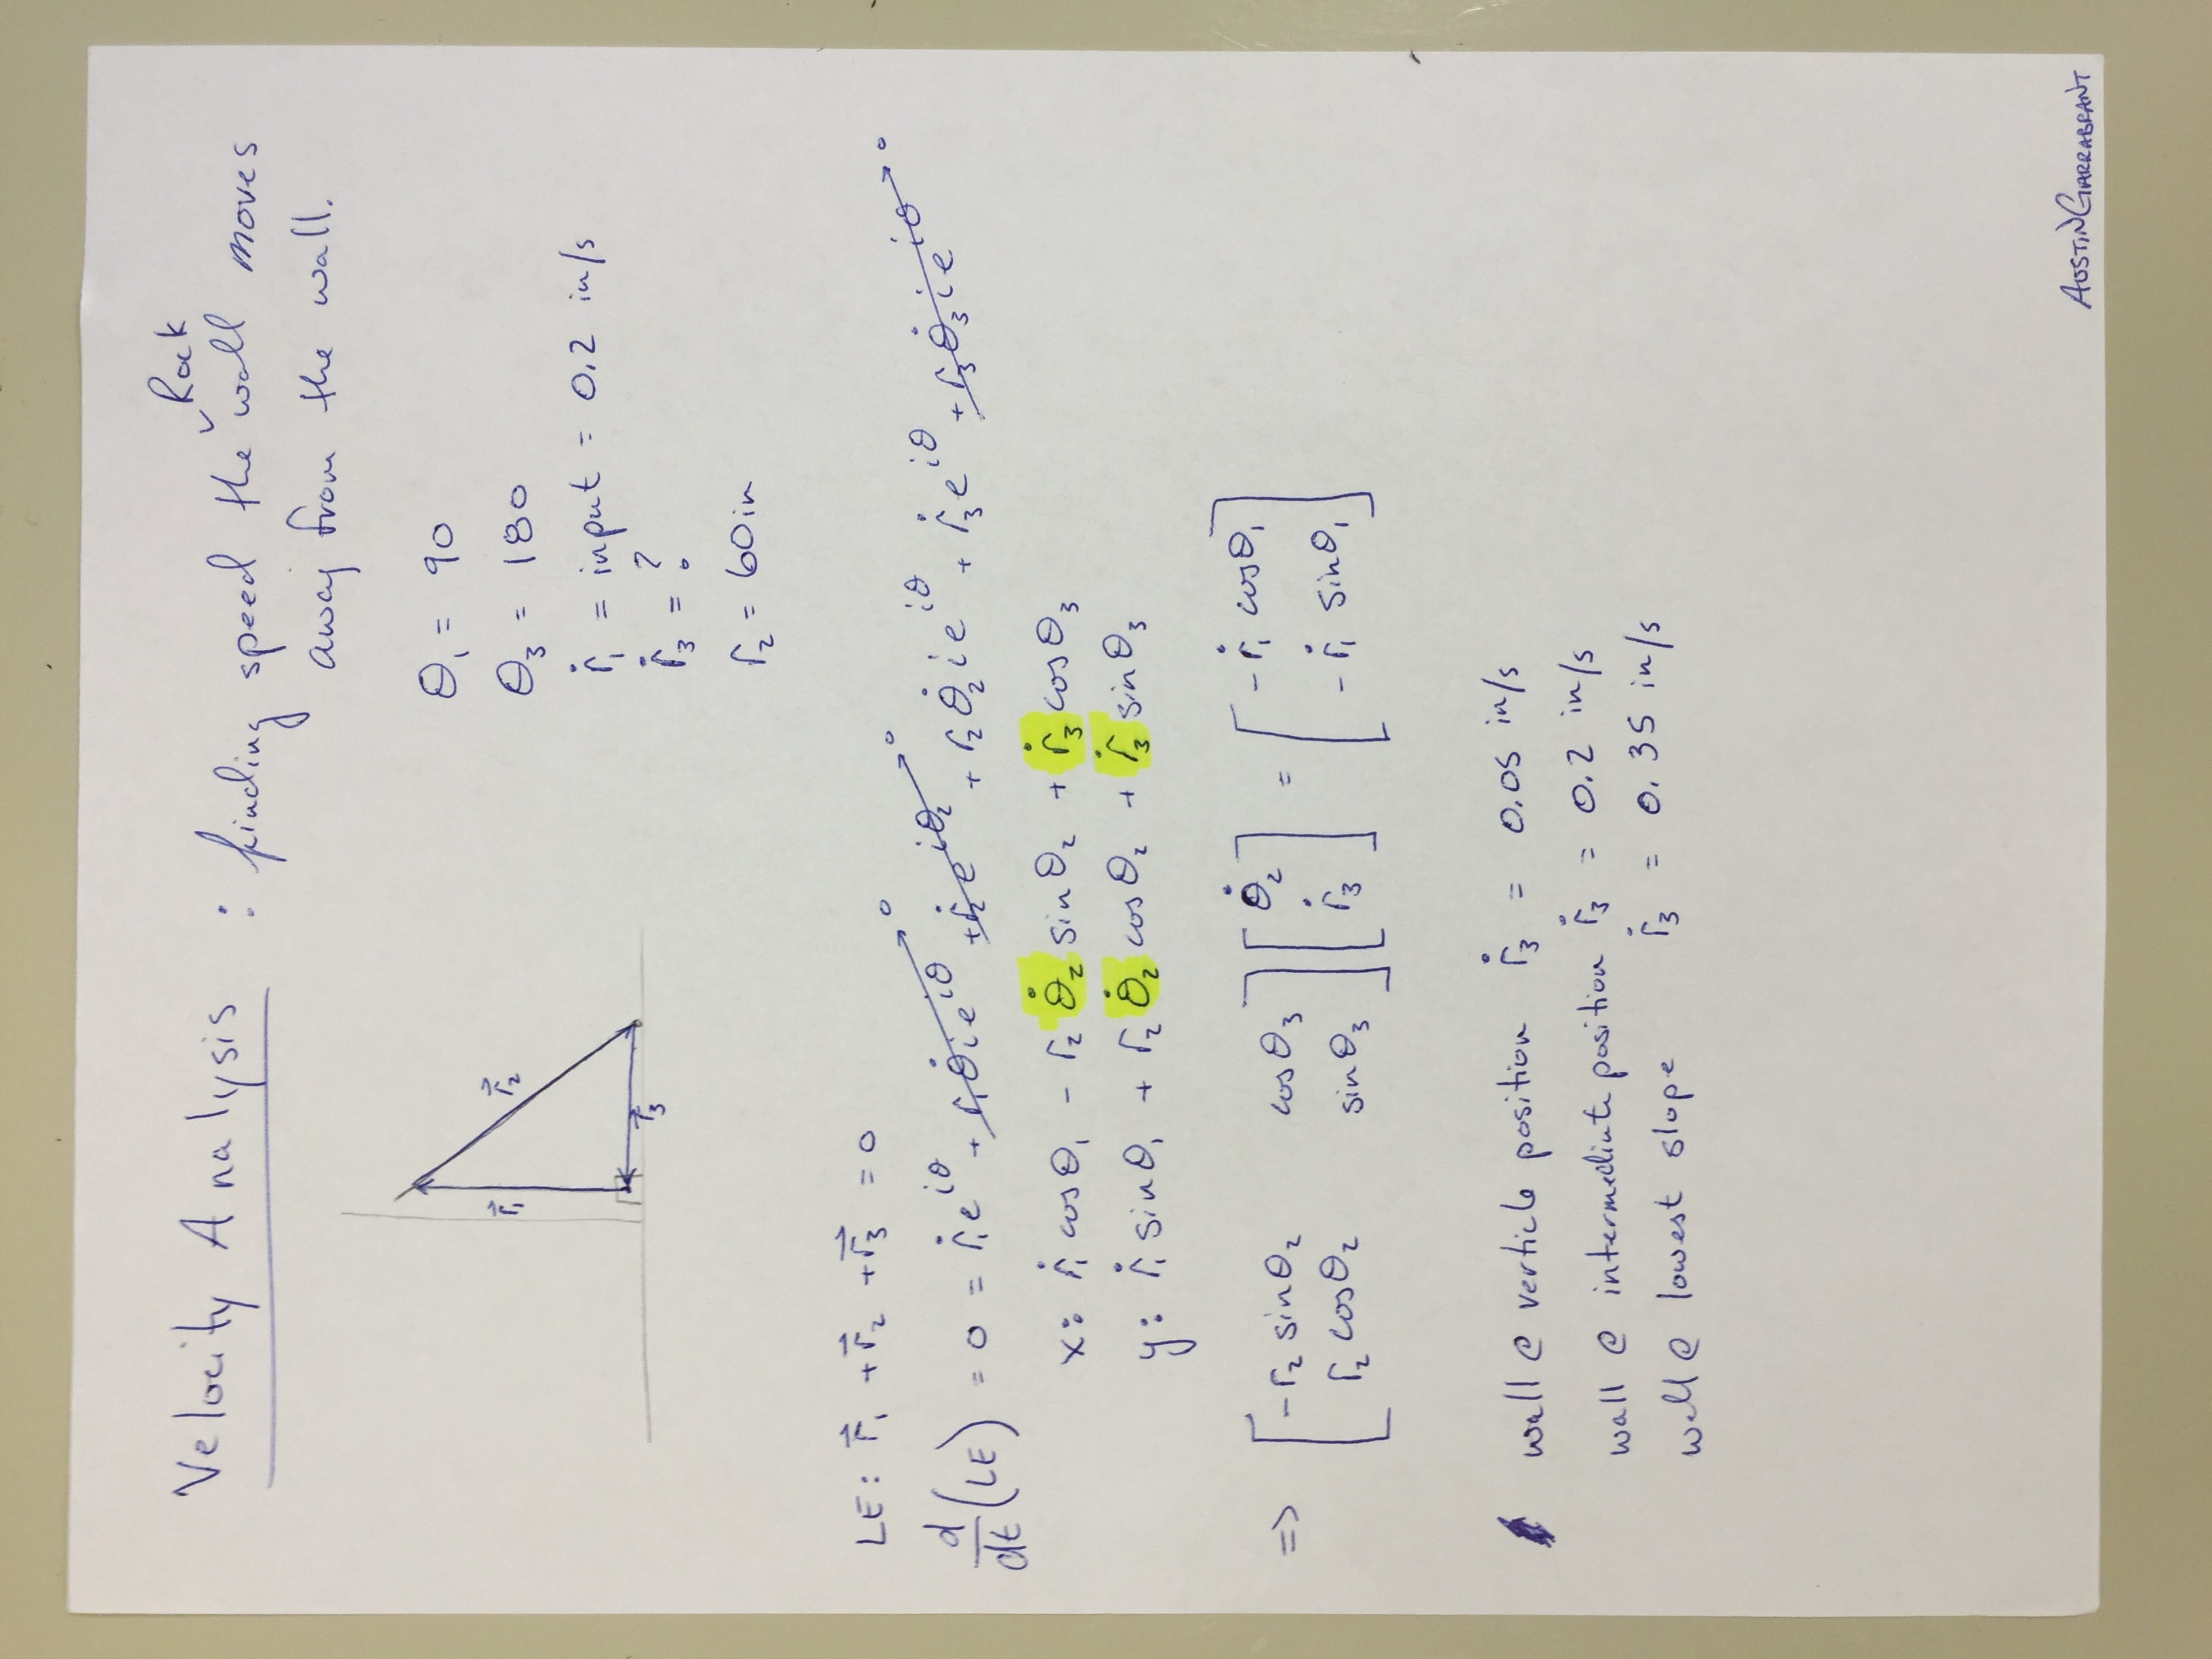 Velocity Analysis : finding speed the Rock wall moves
away from the wall.
θ₁ = 90
θ₃ = 180
ṙ₁ = input = 0.2 in/s
ṙ₃ = ?
r₂ = 60in
r⃗₁
r⃗₂
r⃗₃
LE: r⃗₁ + r⃗₂ + r⃗₃ = 0
d/dt (LE) = 0 = ṙ₁e^iθ + r₁θ̇ie^iθ → 0 + ṙ₂e^iθ₂ → 0 + r₂θ̇₂ie^iθ + ṙ₃e^iθ + r₃θ̇₃ie^iθ → 0
x: ṙ₁ cosθ₁ - r₂ θ̇₂ sinθ₂ + ṙ₃ cosθ₃
y: ṙ₁ sinθ₁ + r₂ θ̇₂ cosθ₂ + ṙ₃ sinθ₃
=> [-r₂ sinθ₂ cosθ₃] [θ̇₂] = [-ṙ₁ cosθ₁]
[r₂ cosθ₂ sinθ₃] [ṙ₃] [-ṙ₁ sinθ₁]
wall @ verticle position ṙ₃ = 0.05 in/s
wall @ intermediate position ṙ₃ = 0.2 in/s
wall @ lowest slope ṙ₃ = 0.35 in/s
AUSTIN GARRABRANT